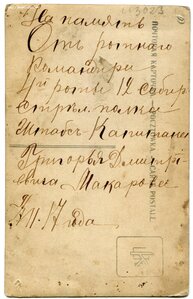 На память
Отъ ротнаго
Командира
4й роты 12 Сибир
стрѣлк. полка
Штабсъ Капитана
Григорья Дмитрі
евича Макарова
II-17 года
ПОЧТОВАЯ КАРТОЧКА
CARTE POSTALE